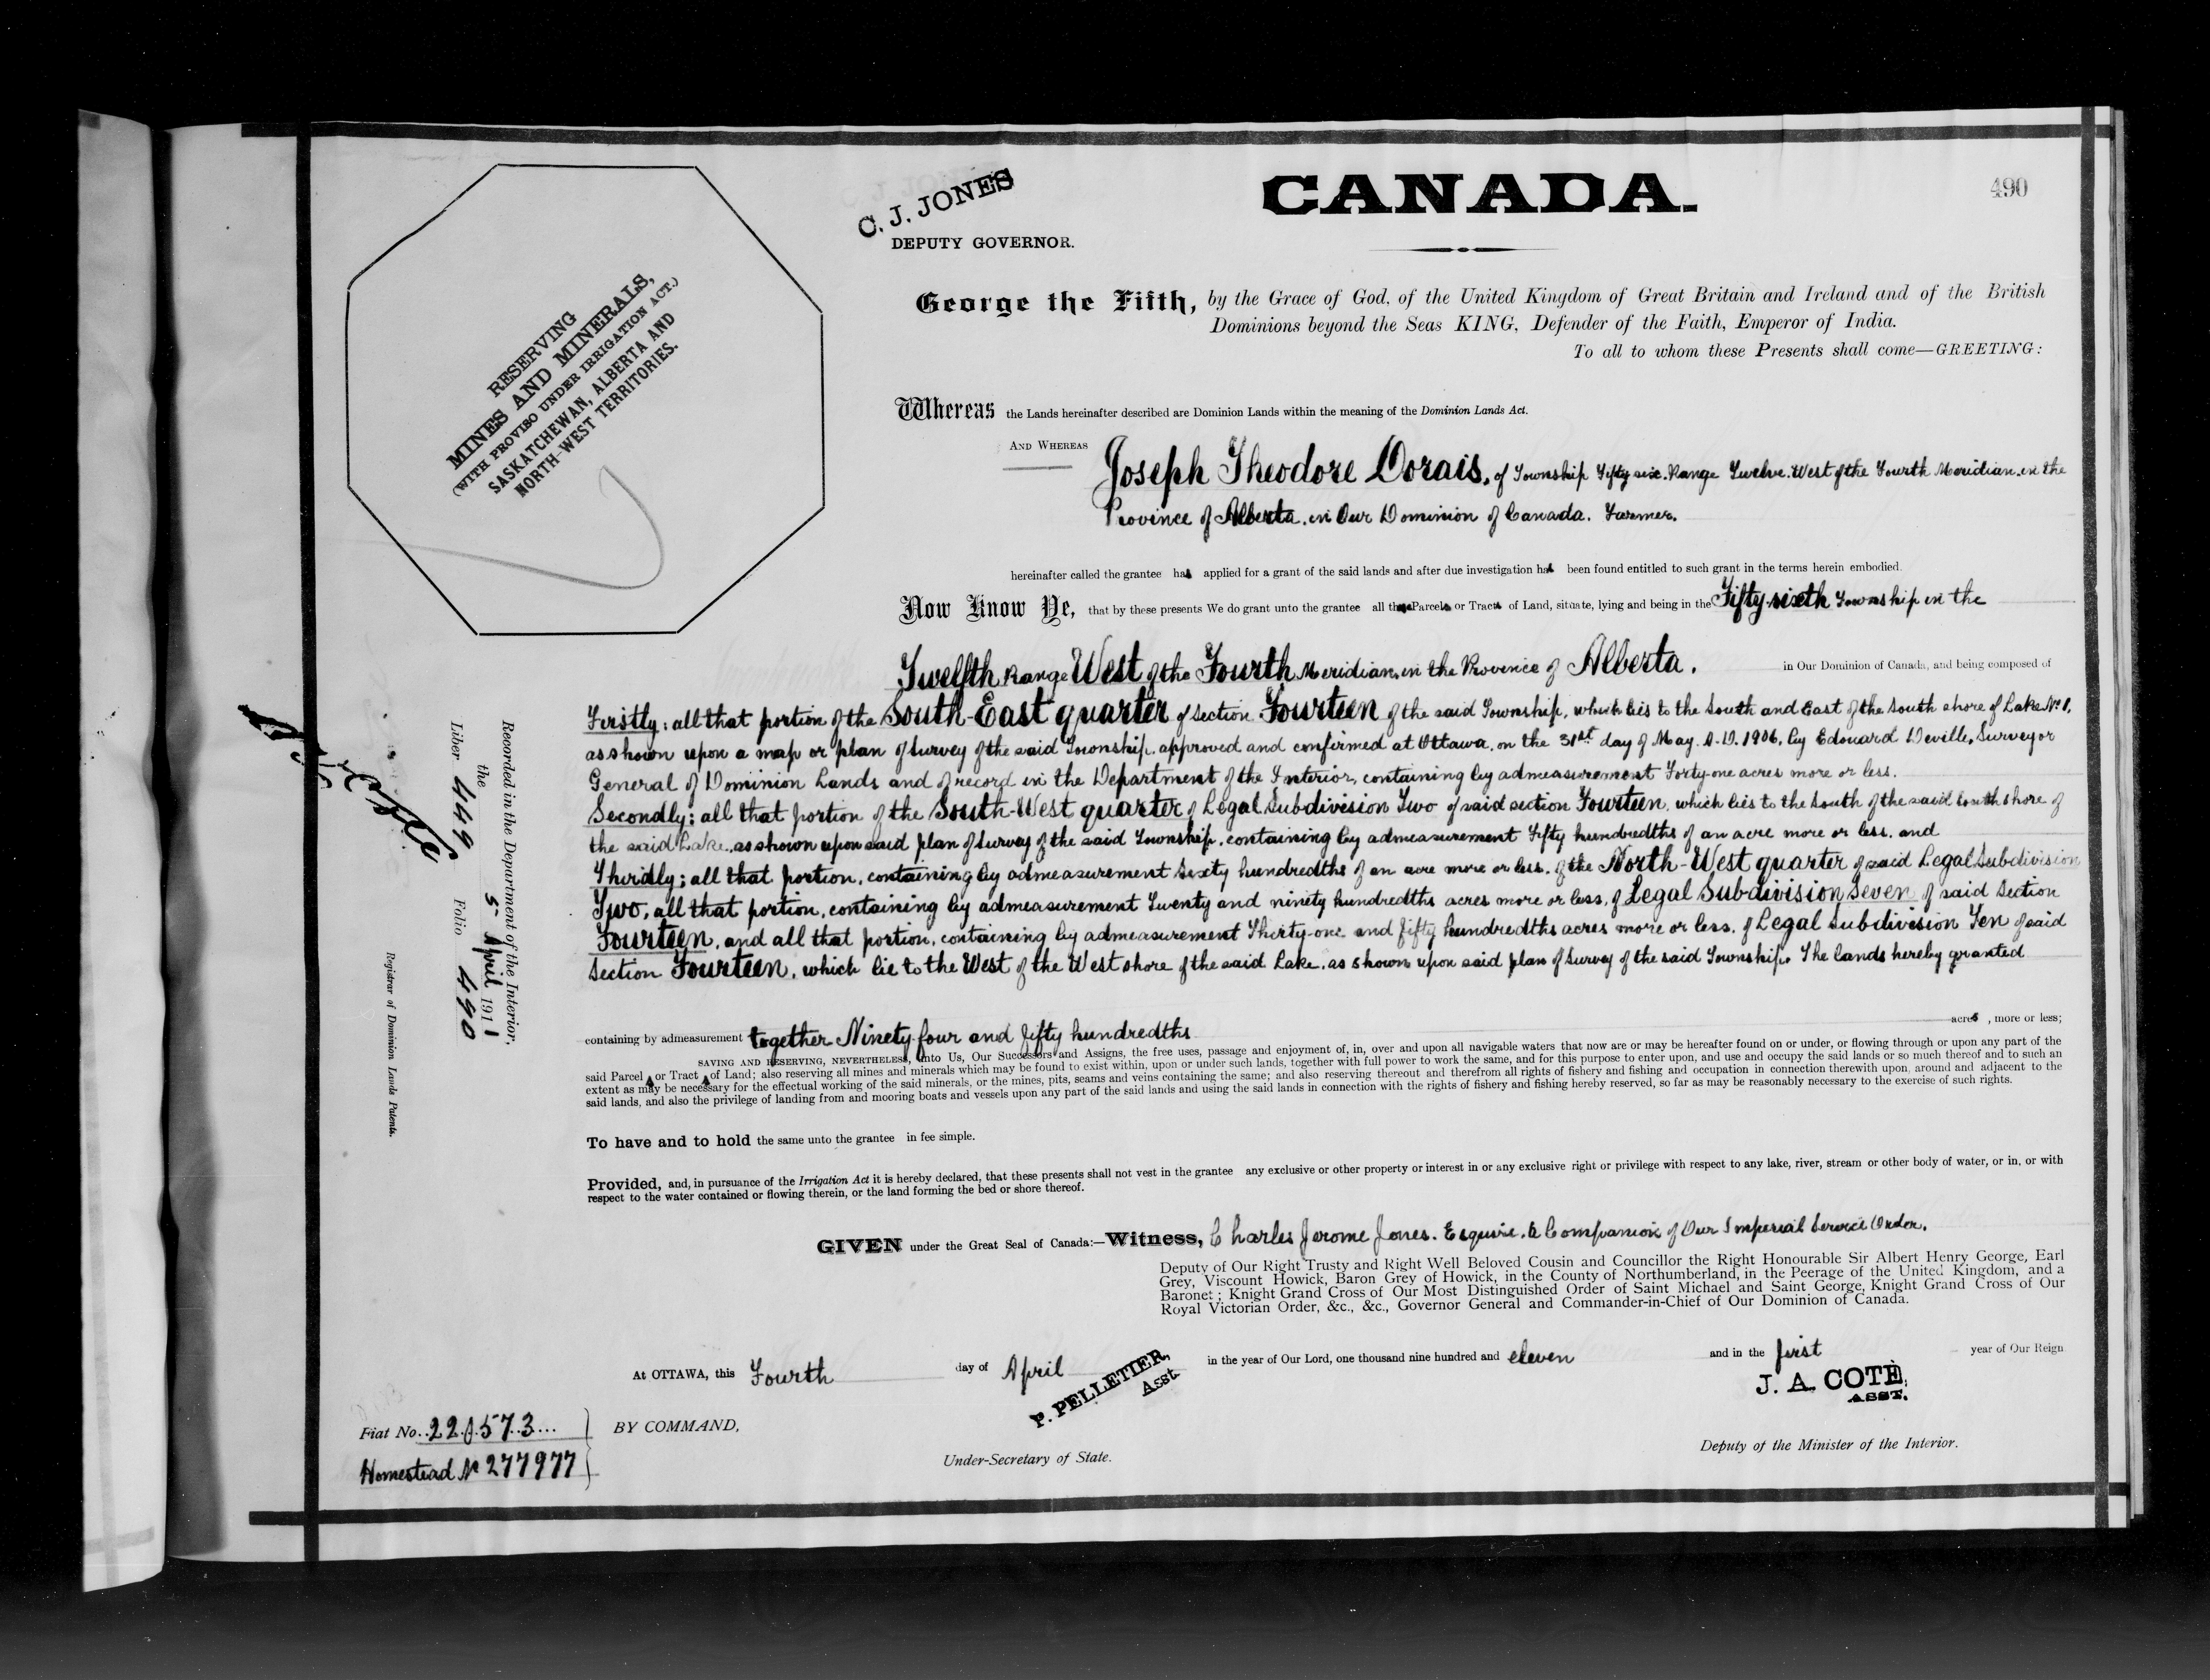 490
CANADA.
C. J. JONES
DEPUTY GOVERNOR.
RESERVING
MINES AND MINERALS,
(WITH PROVISO UNDER IRRIGATION ACT.)
SASKATCHEWAN, ALBERTA AND
NORTH-WEST TERRITORIES.
George the Fifth, by the Grace of God, of the United Kingdom of Great Britain and Ireland and of the British
Dominions beyond the Seas KING, Defender of the Faith, Emperor of India.
To all to whom these Presents shall come—GREETING:
Whereas the Lands hereinafter described are Dominion Lands within the meaning of the Dominion Lands Act.
AND WHEREAS Joseph Theodore Dorais, of Township Fifty six. Range Twelve. West of the Fourth Meridian. in the
Province of Alberta. in Our Dominion of Canada. Farmer.
hereinafter called the grantee has applied for a grant of the said lands and after due investigation has been found entitled to such grant in the terms herein embodied.
Now Know Ye, that by these presents We do grant unto the grantee all those Parcels or Tracts of Land, situate, lying and being in the Fifty-sixth Township in the
Twelfth Range West of the Fourth Meridian, in the Province of Alberta. in Our Dominion of Canada, and being composed of
Firstly: all that portion of the South-East quarter of section Fourteen of the said Township, which lies to the South and East of the South shore of Lake No 1,
as shown upon a map or plan of survey of the said Township, approved and confirmed at Ottawa, on the 31st day of May. A.D. 1906, by Edouard Deville, Surveyor
General of Dominion Lands and of record in the Department of the Interior, containing by admeasurement Forty-one acres more or less.
Secondly: all that portion of the South-West quarter of Legal Subdivision Two of said section Fourteen, which lies to the South of the said South shore of
the said Lake, as shown upon said plan of Survey of the said Township, containing by admeasurement Fifty hundredths of an acre more or less. and
Thirdly; all that portion, containing by admeasurement Sixty hundredths of an acre more or less. of the North-West quarter of said Legal Subdivision
Two, all that portion, containing by admeasurement Twenty and ninety hundredths acres more or less, of Legal Subdivision Seven of said Section
Fourteen, and all that portion, containing by admeasurement Thirty-one and fifty hundredths acres more or less. of Legal Subdivision Ten of said
Section Fourteen, which lie to the West of the West shore of the said Lake, as shown upon said plan of Survey of the said Township. The lands hereby granted
containing by admeasurement together Ninety-four and fifty hundredths acres, more or less;
SAVING AND RESERVING, NEVERTHELESS, unto Us, Our Successors and Assigns, the free uses, passage and enjoyment of, in, over and upon all navigable waters that now are or may be hereafter found on or under, or flowing through or upon any part of the
said Parcel or Tract of Land; also reserving all mines and minerals which may be found to exist within, upon or under such lands, together with full power to work the same, and for this purpose to enter upon, and use and occupy the said lands or so much thereof and to such an
extent as may be necessary for the effectual working of the said minerals, or the mines, pits, seams and veins containing the same; and also reserving thereout and therefrom all rights of fishery and fishing and occupation in connection therewith upon, around and adjacent to the
said lands, and also the privilege of landing from and mooring boats and vessels upon any part of the said lands and using the said lands in connection with the rights of fishery and fishing hereby reserved, so far as may be reasonably necessary to the exercise of such rights.
To have and to hold the same unto the grantee in fee simple.
Provided, and, in pursuance of the Irrigation Act it is hereby declared, that these presents shall not vest in the grantee any exclusive or other property or interest in or any exclusive right or privilege with respect to any lake, river, stream or other body of water, or in, or with
respect to the water contained or flowing therein, or the land forming the bed or shore thereof.
GIVEN under the Great Seal of Canada:—Witness, Charles Jerome Jones. Esquire. a Companion of Our Imperial Service Order.
Deputy of Our Right Trusty and Right Well Beloved Cousin and Councillor the Right Honourable Sir Albert Henry George, Earl
Grey, Viscount Howick, Baron Grey of Howick, in the County of Northumberland, in the Peerage of the United Kingdom, and a
Baronet; Knight Grand Cross of Our Most Distinguished Order of Saint Michael and Saint George, Knight Grand Cross of Our
Royal Victorian Order, &c., &c., Governor General and Commander-in-Chief of Our Dominion of Canada.
At OTTAWA, this Fourth day of April in the year of Our Lord, one thousand nine hundred and eleven and in the first year of Our Reign
P. PELLETIER,
Asst
J. A. COTÉ,
ASST.
BY COMMAND,
Under-Secretary of State.
Deputy of the Minister of the Interior.
Fiat No. 220573
Homestead No 277977
Recorded in the Department of the Interior,
the 5 April 1911
Liber 449 Folio 490
Registrar of Dominion Lands Patents.